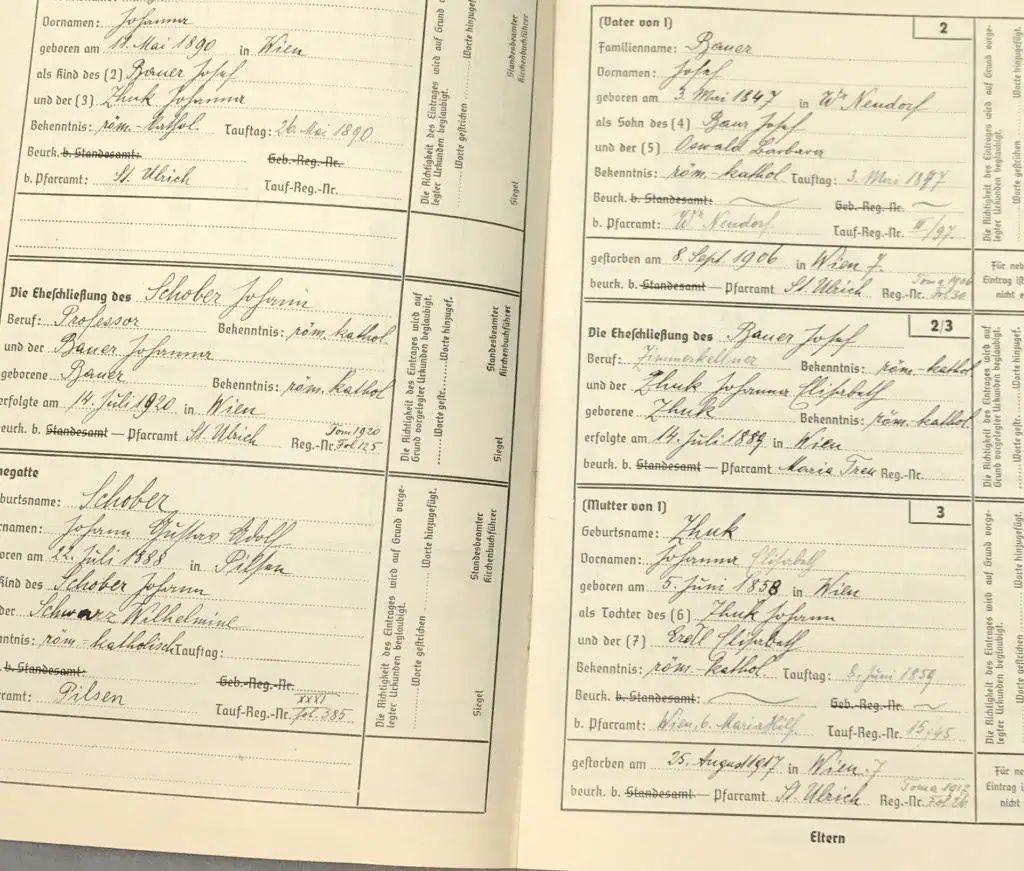 Vornamen: Johanna
geboren am 18. Mai 1890 in Wien
als Kind des (2) Bauer Josef
und der (3) Zhuk Johanna
Bekenntnis: röm.-kathol. Tauftag: 26. Mai 1890
Beurk. b. Standesamt: Geb.-Reg.-Nr.
b. Pfarramt: St. Ulrich Tauf-Reg.-Nr.
Die Richtigkeit des Eintrages wird auf Grund
legter Urkunden beglaubigt.
Worte gestrichen Worte hinzugefügt
Siegel
Standesbeamter
Kirchenbuchführer
Die Eheschließung des Schober Johann
Beruf: Professor Bekenntnis: röm. kathol.
und der Bauer Johanna
geborene Bauer Bekenntnis: röm. kathol
erfolgte am 14. Juli 1920 in Wien
beurk. b. Standesamt — Pfarramt St. Ulrich Reg.-Nr. Tom 1920 Fol 125
Die Richtigkeit des Eintrages wird auf
Grund vorgelegter Urkunden beglaubigt.
Worte gestr. Worte hinzugef.
Siegel
Standesbeamter
Kirchenbuchführer
hegatte
burtsname: Schober
rnamen: Johann Gustav Adolf
oren am 22. Juli 1888 in Pilsen
Kind des Schober Johann
der Schwarz Wilhelmine
nntnis: röm.-katholisch Tauftag:
b. Standesamt: Geb.-Reg.-Nr.
ramt: Pilsen Tauf-Reg.-Nr. XXXI fol. 385
Die Richtigkeit des Eintrages wird auf Grund vorge-
legter Urkunden beglaubigt.
Worte gestrichen Worte hinzugefügt.
Siegel
Standesbeamter
Kirchenbuchführer
(Vater von 1) 2
Familienname: Bauer
Vornamen: Josef
geboren am 3. Mai 1847 in Wr Neudorf
als Sohn des (4) Baur Josef
und der (5) Oswald Barbara
Bekenntnis: röm.-kathol Tauftag: 3. Mai 1847
Beurk. b. Standesamt: Geb.-Reg.-Nr.
b. Pfarramt: Wr Neudorf Tauf-Reg.-Nr. III/97.
gestorben am 8. Sept. 1906 in Wien 7.
beurk. b. Standesamt — Pfarramt St. Ulrich Reg.-Nr. Tom 1906 Fol 50
Die Eheschließung des Bauer Josef 2/3
Beruf: Zimmerkellner Bekenntnis: röm.-kathol.
und der Zhuk Johanna Elisabeth
geborene Zhuk Bekenntnis: röm.-kathol.
erfolgte am 14. Juli 1889 in Wien
beurk. b. Standesamt — Pfarramt Maria Treu Reg.-Nr.
(Mutter von 1) 3
Geburtsname: Zhuk
Vornamen: Johanna Elisabeth
geboren am 5. Juni 1858 in Wien
als Tochter des (6) Zhuk Johann
und der (7) Elisabeth
Bekenntnis: röm. kathol Tauftag: 8. Juni 1859
Beurk. b. Standesamt: Geb.-Reg.-Nr.
b. Pfarramt: Wien, 6. Mariahilf Tauf-Reg.-Nr. 15/45
gestorben am 25. August 1917 in Wien 7
beurk. b. Standesamt — Pfarramt St. Ulrich Reg.-Nr. Fol 26
Die Richtigkeit des Eintrages wird auf Grund vorge-
legter Urkunden beglaubigt.
Worte gestrichen Worte hinzugefügt.
Für ne
Eintrag ist
nicht e
Die Richtigkeit des Eintrages wird auf
Grund vorgelegter Urkunden beglaubigt.
Worte gestr. Worte hinzugef.
Die Richtigkeit des Eintrages wird auf Grund vorge-
legter Urkunden beglaubigt.
Worte gestrichen Worte hinzugefügt.
Für ne
Eintrag i
nicht
Eltern